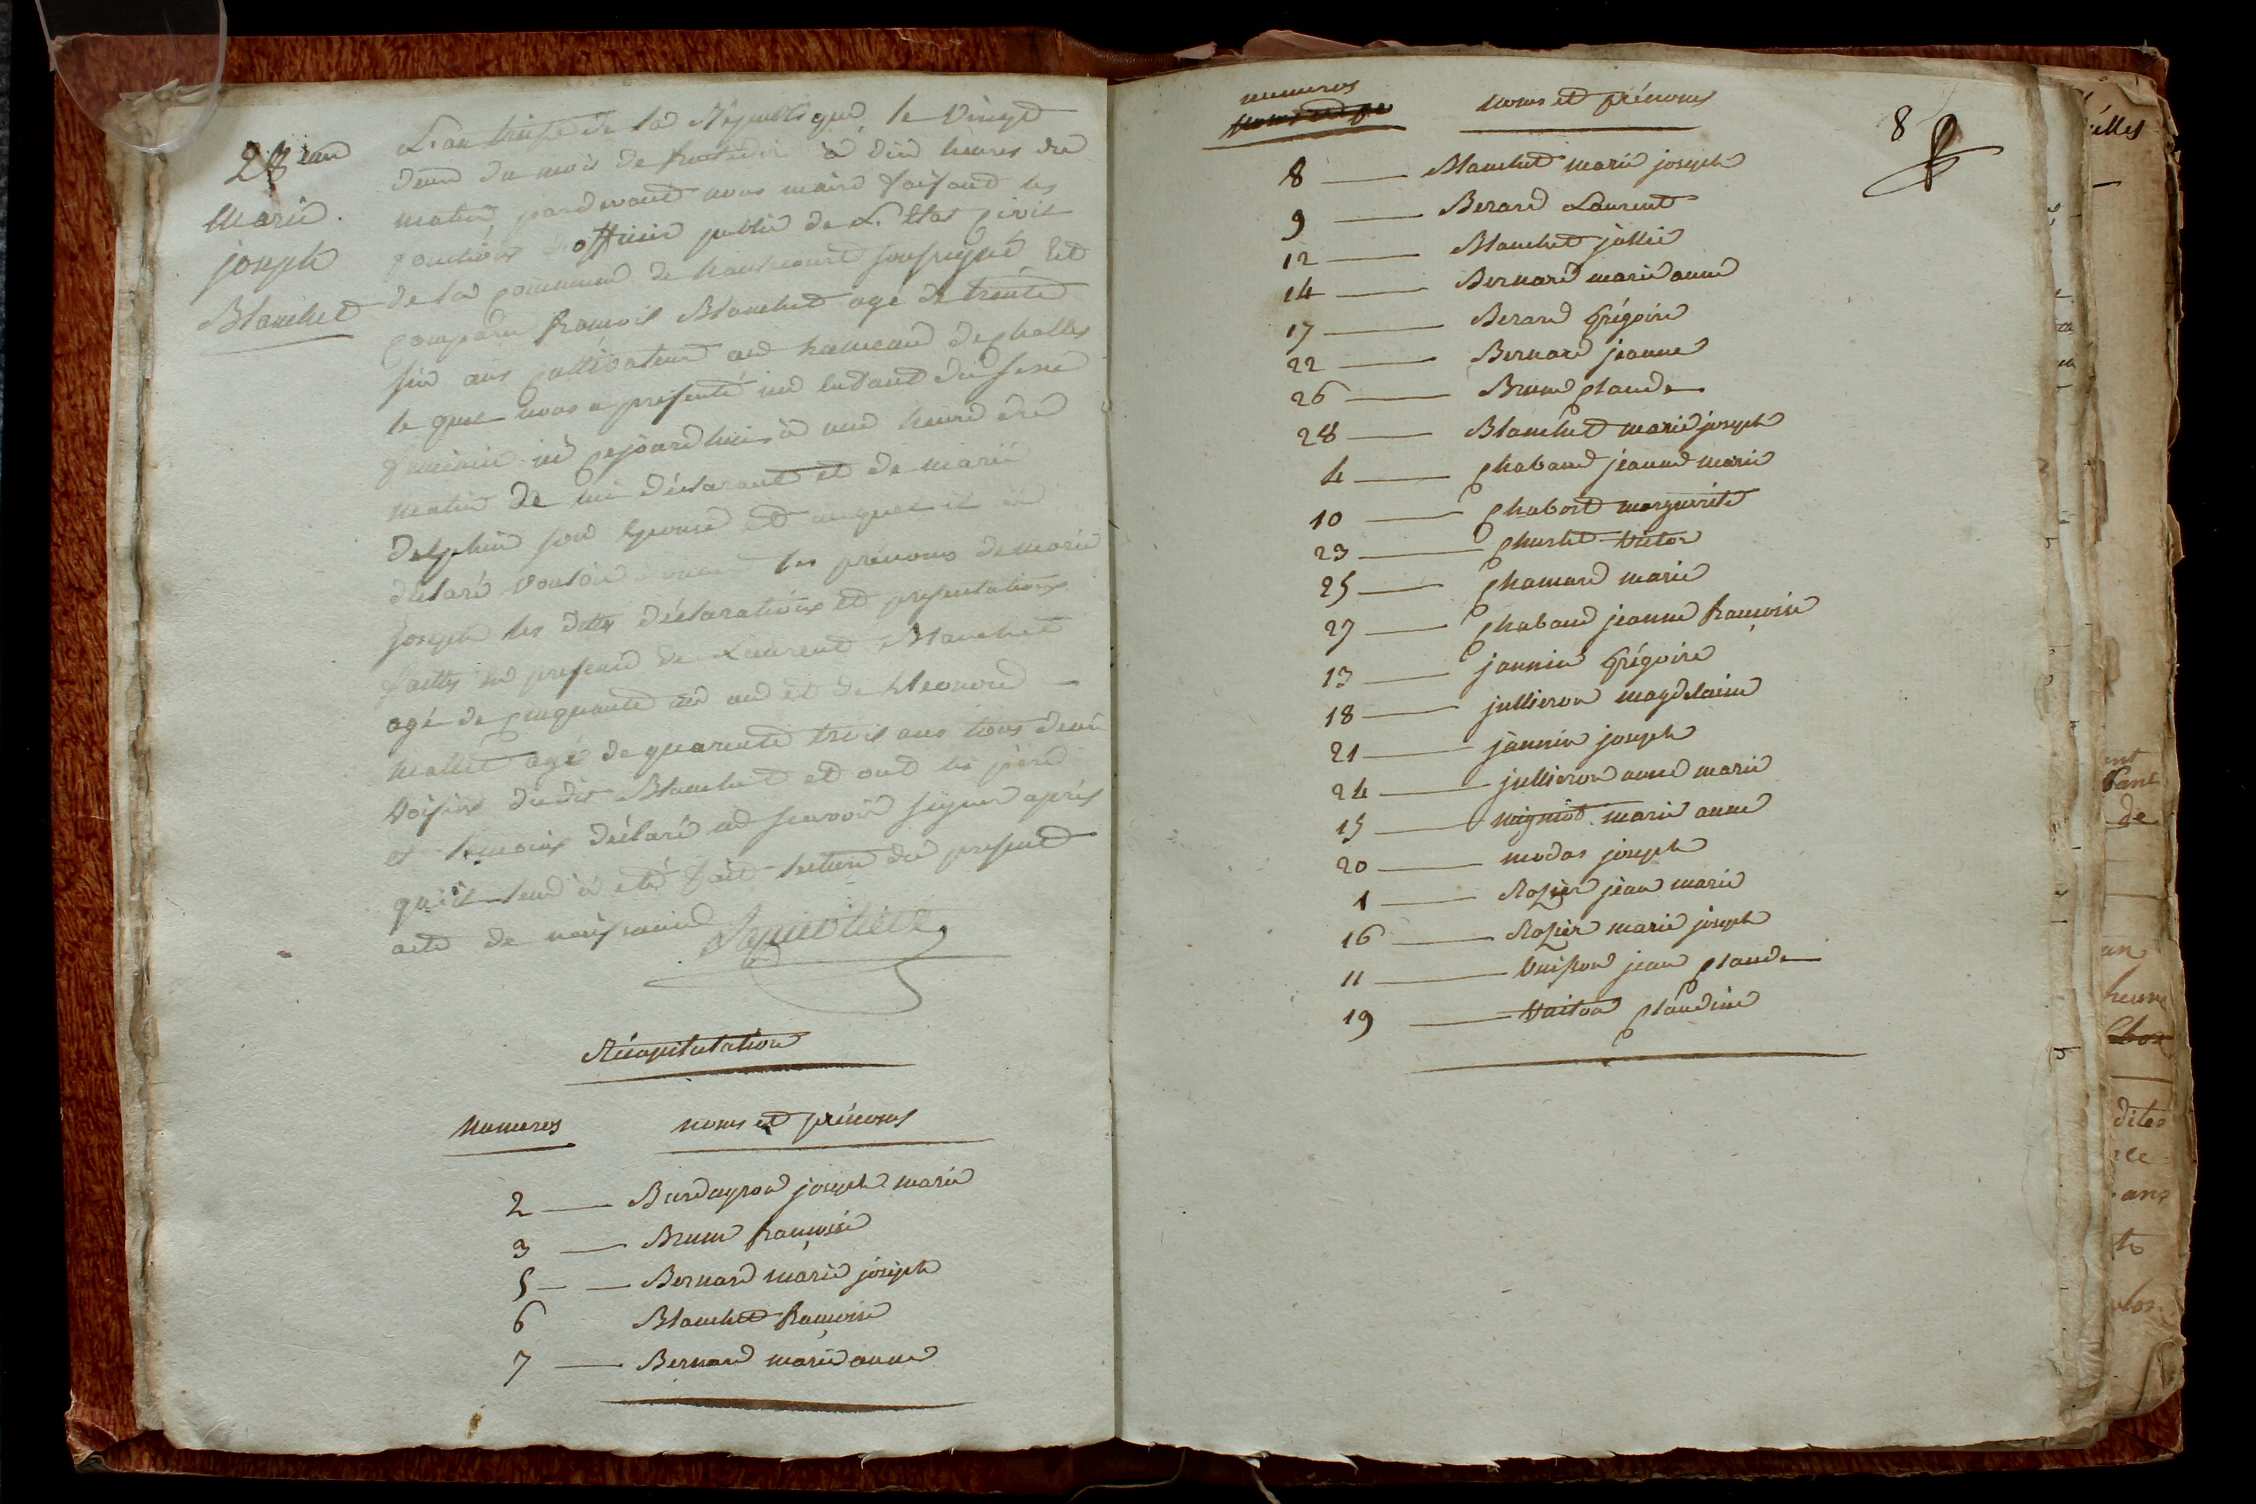 28 ieme
Marie
joseph
Blanchet
L'an treize de la République le vingt
deux du mois de fructidor à dix heures du
matin pardevant nous maire faisant les
fonctions d'officier public de L'Etat Civil
de la commune de soussigné Est
comparu francois Blanchet agé de trente
six ans cultivateur au hameau de challes
le quel nous a presenté un Enfant du sexe
feminin né cejourdhui à une heure du
matin de lui déclarant et de marie
Delphin son Epouse et auquel il a
déclaré vouloir donner les prénoms de marie
joseph les dittes déclarations et presentations
faittes en presence de Laurent Blanchet
agé de cinquante un an et de
agé de quarente trois ans tous deux
voisins dudit Blanchet et ont les père
et temoins déclaré ne scavoir signer après
qu'il leur à eté fait lecture du present
acte de naissance
Récapitulation
Numeros noms et prénoms
2 — joseph marie
3 — Brun francoise
5 — Bernard marie joseph
6 Blanchet francoise
7 — Bernard marie anne
numeros noms et prénoms
8
8 — Blanchet marie joseph
9 — Berard Laurent
12 — Blanchet jullie
14 — Bernard marie anne
17 — Berard Grégoire
22 — Bernard jeanne
26 — Brun Claude
28 — Blanchet marie joseph
4 — Chaband jeanne marie
10 — Chabert marguerite
23 — Charlet Victor
25 — Chamard marie
27 — Chaband jeanne francoise
13 — jannin Grégoire
18 — jullieron magdelaine
21 — jannin joseph
24 — jullieron anne marie
15 — mignot marie anne
20 — modas joseph
1 — Rozier jean marie
16 — Rozier marie joseph
11 — jean Claude
19 — Claudine